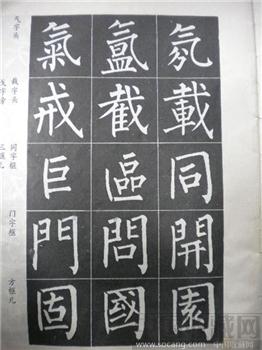 氛氳氣
載截戒
同區巨
開問門
園國固
气字头
戈字旁
同字框
三匡儿
门字框
方框儿
www.socang.com